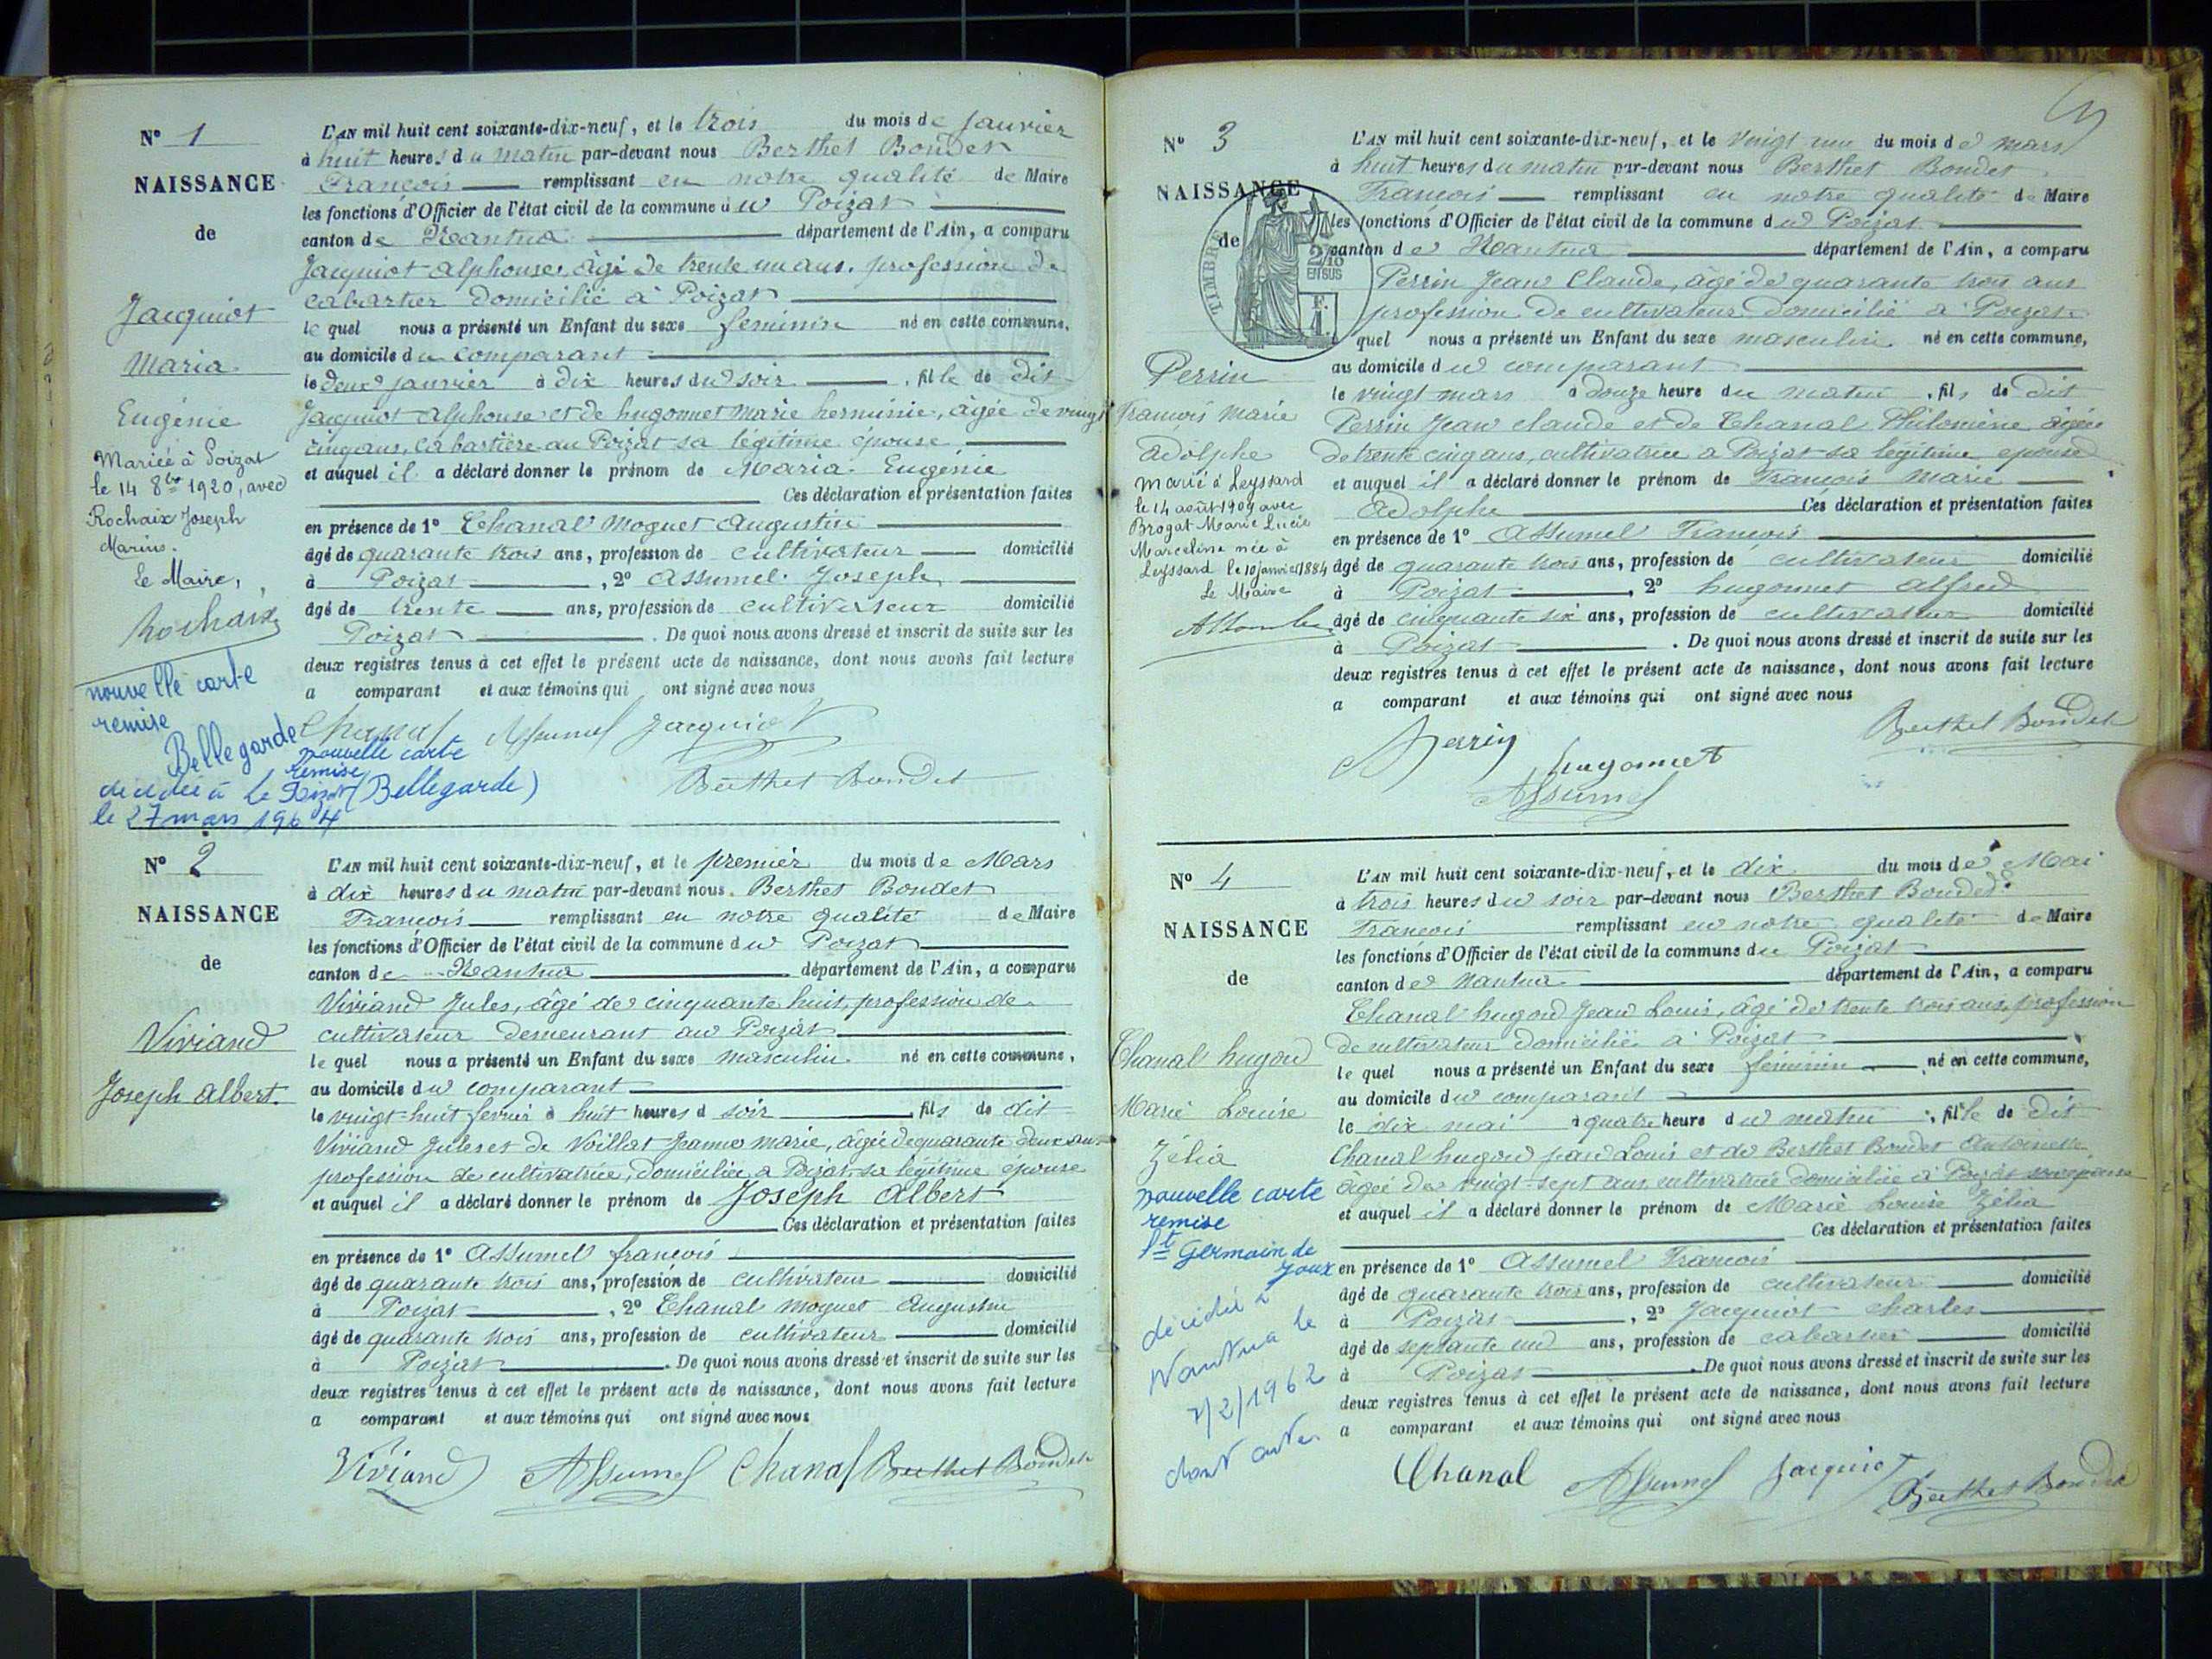 N° 1
NAISSANCE
de
Jacquiot
Maria
Eugénie
Mariée à Poizat
le 14 8bre 1920, avec
Rochaix Joseph
Marius.
Le Maire,
Rochaix
nouvelle carte
remise
Bellegarde
nouvelle carte
remise
décédée à le Poizat (Bellegarde)
le 27 mars 1964
L'AN mil huit cent soixante-dix-neuf, et le trois du mois de Janvier
à huit heures du matin par-devant nous Berthet Bondet
François remplissant en notre qualité de Maire
les fonctions d'Officier de l'état civil de la commune du Poizat
canton de Nantua département de l'Ain, a comparu
Jacquiot Alphonse, âgé de trente un ans, profession de
cabartier domicilié à Poizat
le quel nous a présenté un Enfant du sexe feminin né en cette commune,
au domicile du comparant
le deux janvier à dix heures du soir, fille de dit
Jacquiot Alphonse et de hugonnet Marie herminie, âgée de vingt
cinq ans, cabartière au Poizat sa légitime épouse
et auquel il a déclaré donner le prénom de Maria Eugénie
Ces déclaration et présentation faites
en présence de 1° Chanal Moguet Augustin
âgé de quarante trois ans, profession de cultivateur domicilié
à Poizat, 2° Assumel Joseph
âgé de trente ans, profession de cultivateur domicilié
Poizat. De quoi nous avons dressé et inscrit de suite sur les
deux registres tenus à cet effet le présent acte de naissance, dont nous avons fait lecture
a comparant et aux témoins qui ont signé avec nous
Chanal Assumel Jacquiot
Berthet Bondet
N° 2
NAISSANCE
de
Viviand
Joseph Albert.
L'AN mil huit cent soixante-dix-neuf, et le premier du mois de Mars
à dix heures du matin par-devant nous Berthet Bondet
François remplissant en notre qualité de Maire
les fonctions d'Officier de l'état civil de la commune du Poizat
canton de Nantua département de l'Ain, a comparu
Viviand Jules, âgé de cinquante huit, profession de
cultivateur demeurant au Poizat
le quel nous a présenté un Enfant du sexe masculin né en cette commune,
au domicile du comparant
le vingt-huit fevrier à huit heures d soir, fils de dit
Viviand Jules et de Voillat Jeanne Marie, âgée de quarante deux ans
profession de cultivatrice, domiciliée a Poizat sa légitime épouse
et auquel il a déclaré donner le prénom de Joseph Albert
Ces déclaration et présentation faites
en présence de 1° Assumel françois
âgé de quarante trois ans, profession de cultivateur domicilié
à Poizat, 2° Chanal Moguet Augustin
âgé de quarante trois ans, profession de cultivateur domicilié
à Poizat. De quoi nous avons dressé et inscrit de suite sur les
deux registres tenus à cet effet le présent acte de naissance, dont nous avons fait lecture
a comparant et aux témoins qui ont signé avec nous
Viviand Assumel Chanal Berthet Bondet
N° 3
NAISSANCE
de
TIMBRE
2/10
EN SUS
F.
1.
Perrin
François Marie
Adolphe
Marié à Leyssard
le 14 août 1909 avec
Brogat Marie Lucie
Marceline née à
Leyssard le 10 janvier 1884
Le Maire
L'AN mil huit cent soixante-dix-neuf, et le vingt un du mois de mars
à huit heures du matin par-devant nous Berthet Bondet
François remplissant en notre qualité de Maire
les fonctions d'Officier de l'état civil de la commune du Poizat
canton de Nantua département de l'Ain, a comparu
Perrin Jean Claude, âgé de quarante trois ans
profession de cultivateur domicilié à Poizat
quel nous a présenté un Enfant du sexe masculin né en cette commune,
au domicile du comparant
le vingt mars à douze heure du matin, fils de dit
Perrin Jean claude et de Chanal Philomène âgée
de trente cinq ans, cultivatrice a Poizat sa légitime epouse
et auquel il a déclaré donner le prénom de François Marie
Adolphe Ces déclaration et présentation faites
en présence de 1° Assumel François
âgé de quarante trois ans, profession de cultivateur domicilié
à Poizat, 2° hugonnet alfred
âgé de cinquante six ans, profession de cultivateur domicilié
à Poizat. De quoi nous avons dressé et inscrit de suite sur les
deux registres tenus à cet effet le présent acte de naissance, dont nous avons fait lecture
a comparant et aux témoins qui ont signé avec nous
Perrin hugonnet Berthet Bondet
Assumel
N° 4
NAISSANCE
de
Chanal hugon
Marie Louise
Zélia
nouvelle carte
remise
St Germain de
Joux
décédée à
Nantua le
7/2/1962
L'AN mil huit cent soixante-dix-neuf, et le dix du mois de Mai
à trois heures du soir par-devant nous Berthet Bondet
François remplissant en notre qualité de Maire
les fonctions d'Officier de l'état civil de la commune du Poizat
canton de Nantua département de l'Ain, a comparu
Chanal hugon Jean Louis, âgé de trente trois ans, profession
de cultivateur domicilié à Poizat
le quel nous a présenté un Enfant du sexe féminin né en cette commune,
au domicile du comparant
le dix mai à quatre heure du matin, fille de dit
Chanal hugon jean Louis et de Berthet Bondet Antoinette
agée de vingt-sept ans cultivatrice domiciliée à Poizat son epouse
et auquel il a déclaré donner le prénom de Marie Louise Zélia
Ces déclaration et présentation faites
en présence de 1° Assumel François
âgé de quarante trois ans, profession de cultivateur domicilié
à Poizat, 2° Jacquiot Charles
âgé de septante un ans, profession de cabartier domicilié
à Poizat. De quoi nous avons dressé et inscrit de suite sur les
deux registres tenus à cet effet le présent acte de naissance, dont nous avons fait lecture
a comparant et aux témoins qui ont signé avec nous
Chanal Assumel Jacquiot Berthet Bondet